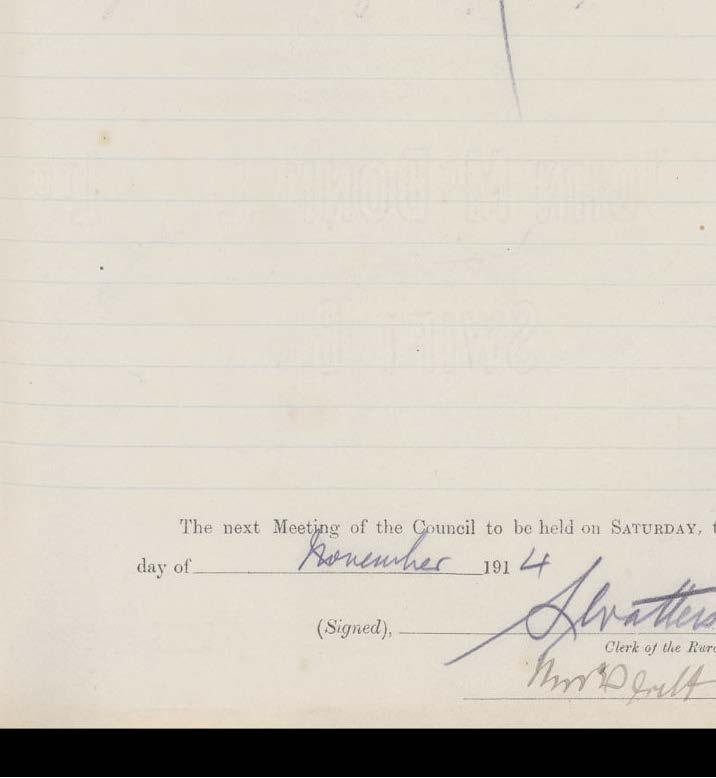 The next Meeting of the Council to be held on SATURDAY, t
day of November 1914
(Signed), S Watters
Clerk of the Rura